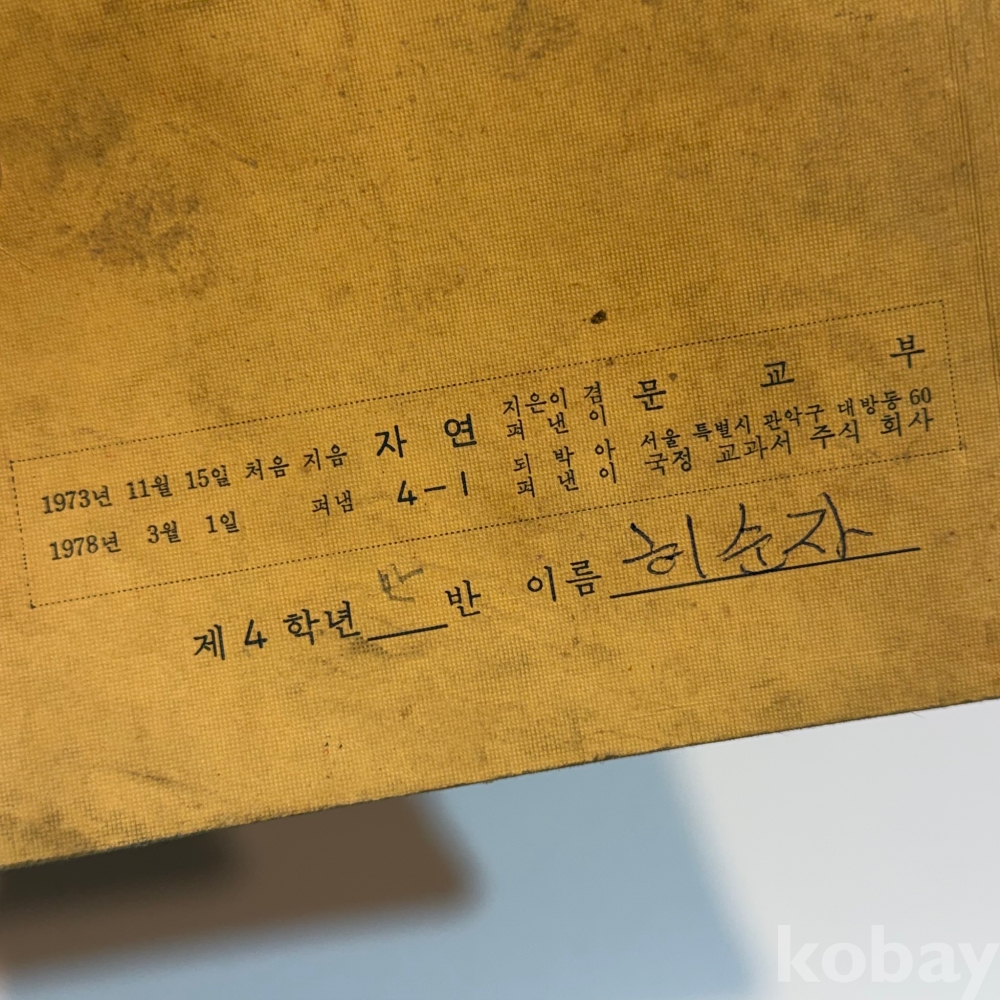 1973년 11월 15일 처음 지음 자 연 지은이 겸 펴 낸 이 문 교 부
1978년 3월 1일 펴냄 4-1 되 박 아 펴 낸 이 서울 특별시 관악구 대방동 60 국정 교과서 주식 회사
제 4 학년 반 이름 허순자
kobay